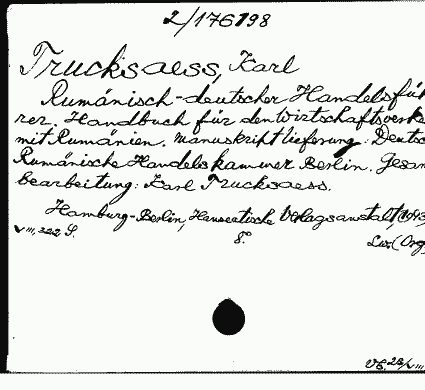 2/176198
Trucksaess, Karl
Rumänisch-deutscher Handelsfüh
rer. Handbuch für den Wirtschaftsverke
mit Rumänien. Manuskriptlieferung: Deutsc
Rumänische Handelskammer Berlin. Gesam
bearbeitung: Karl Trucksaess.
Hamburg-Berlin, Hanseatische Verlagsanstalt, (1943,
VIII, 322 S. 8°. Lw. (Org